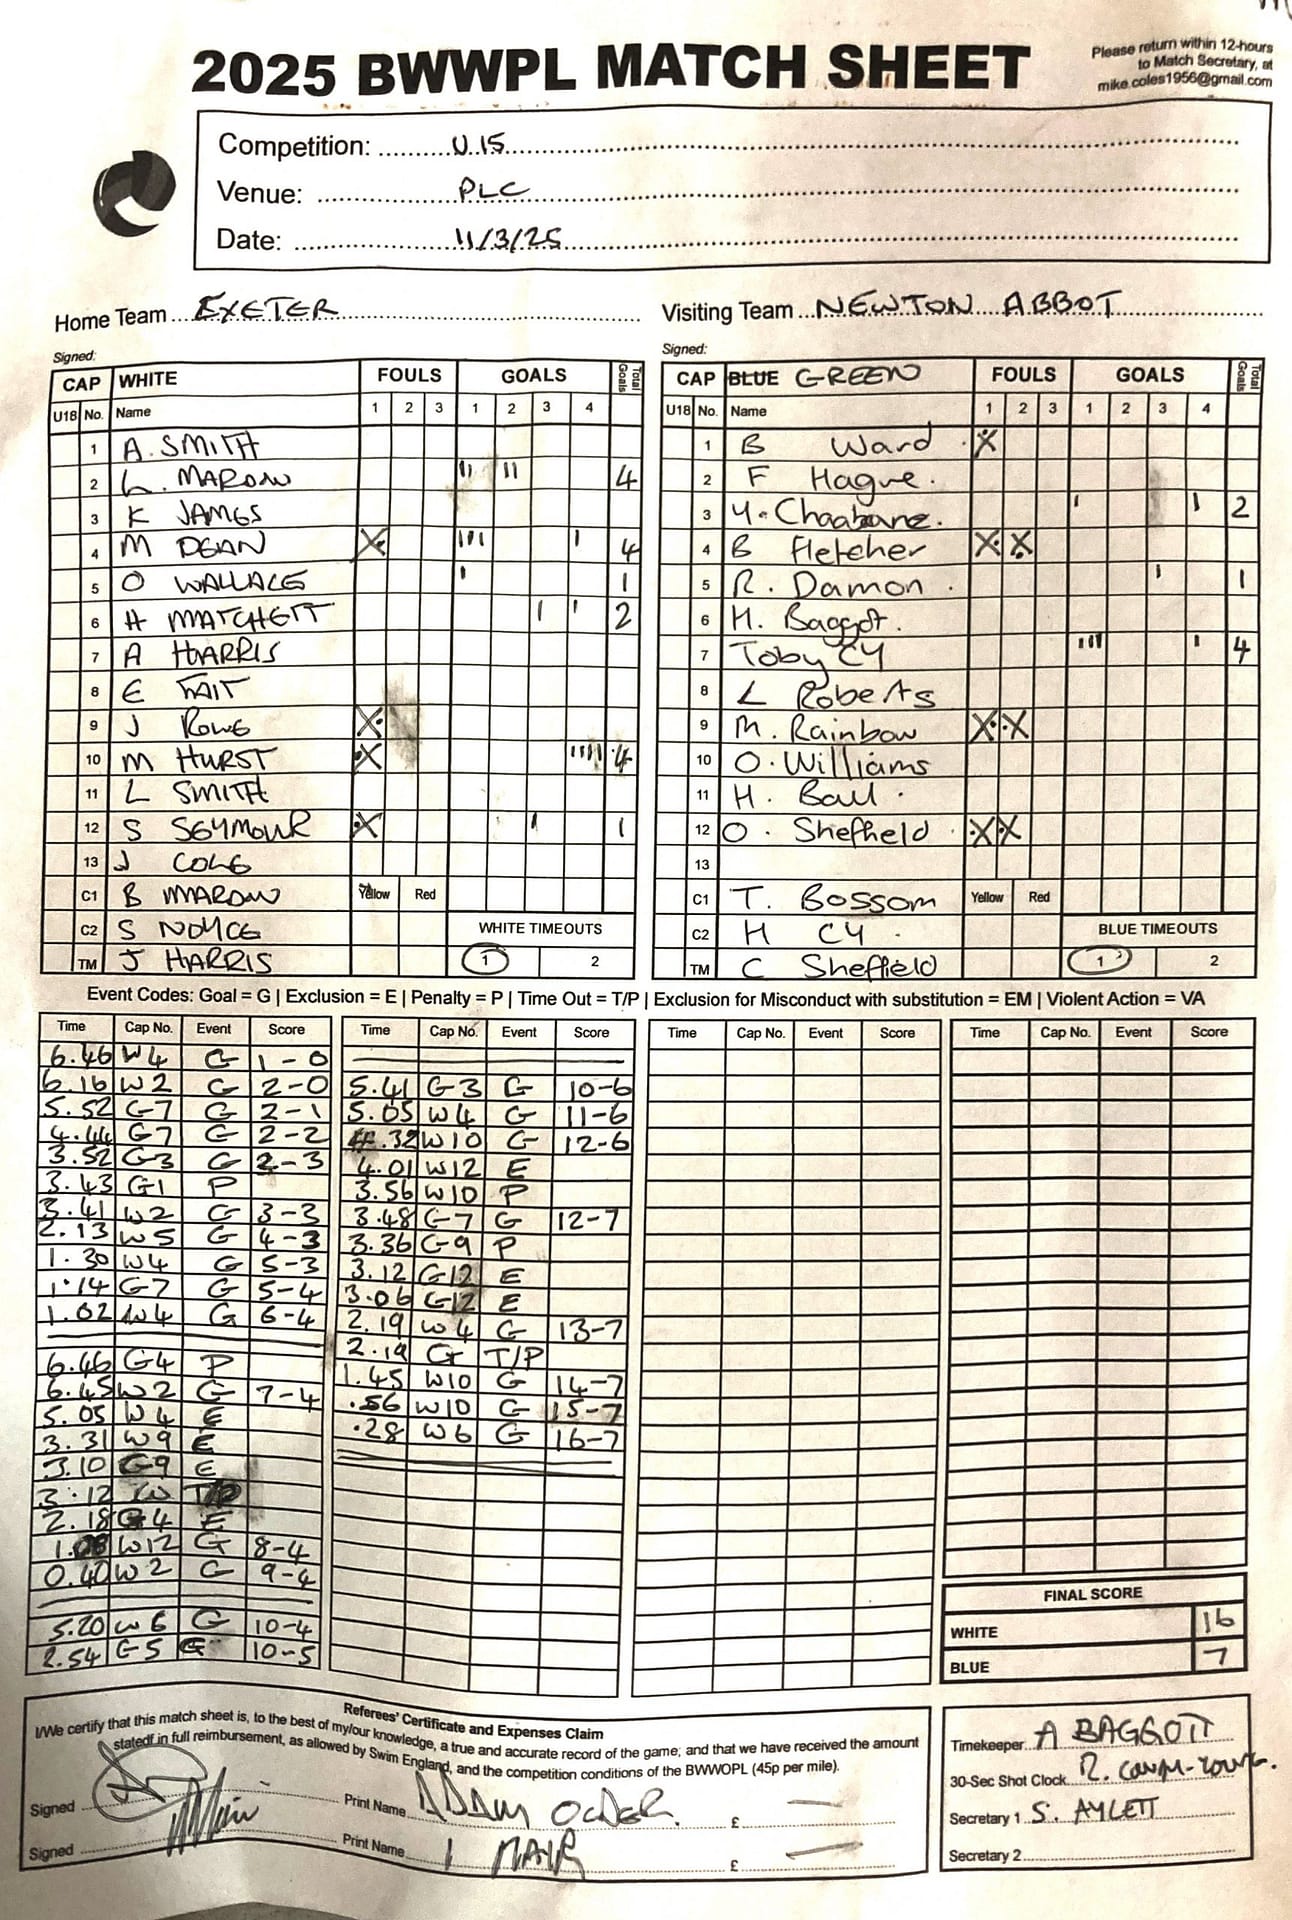 2025 BWWPL MATCH SHEET
Please return within 12-hours
to Match Secretary, at
mike.coles1956@gmail.com
Competition: U.15
Venue: PLC
Date: 11/3/25
Home Team EXETER
Visiting Team NEWTON ABBOT
Signed:
Signed:
CAP WHITE FOULS GOALS Total Goals
U18 No. Name 1 2 3 1 2 3 4
1 A. SMITH
2 L. MAROW II II 4
3 K JAMES
4 M DEAN X III I 4
5 O WALLACE I 1
6 H MATCHETT I I 2
7 A HARRIS
8 E TAIT
9 J ROWE X
10 M HURST X IIII 4
11 L SMITH
12 S SEYMOUR X I 1
13 J COLE
C1 B MAROW Yellow Red
C2 S NOYCE WHITE TIMEOUTS
TM J HARRIS 1 2
CAP BLUE GREEN FOULS GOALS Total Goals
U18 No. Name 1 2 3 1 2 3 4
1 B Ward X
2 F Hague.
3 Y. Chaabane. I I 2
4 B Fletcher X X
5 R. Damon I 1
6 H. Baggot.
7 Toby CY III I 4
8 L Roberts
9 M. Rainbow X X
10 O. Williams
11 H. Ball
12 O. Sheffield X X
13
C1 T. Bossom Yellow Red
C2 H CY. BLUE TIMEOUTS
TM C Sheffield 1 2
Event Codes: Goal = G | Exclusion = E | Penalty = P | Time Out = T/P | Exclusion for Misconduct with substitution = EM | Violent Action = VA
Time Cap No. Event Score
6.46 W4 G 1-0
6.16 W2 G 2-0
5.52 G7 G 2-1
4.44 G7 G 2-2
3.52 G3 G 2-3
3.43 G1 P
3.41 W2 G 3-3
2.13 W5 G 4-3
1.30 W4 G 5-3
1.14 G7 G 5-4
1.02 W4 G 6-4
6.46 G4 P
6.45 W2 G 7-4
5.05 W4 E
3.31 W9 E
3.10 G9 E
3.12 W T/P
2.18 G4 E
W12 G 8-4
0.40 W2 G 9-4
5.20 W6 G 10-4
2.54 G5 G 10-5
Time Cap No. Event Score
5.41 G3 G 10-6
5.05 W4 G 11-6
4.32 W10 G 12-6
4.01 W12 E
3.56 W10 P
3.48 G-7 G 12-7
3.36 G9 P
3.12 G12 E
3.06 G12 E
2.19 W4 G 13-7
2.19 G T/P
1.45 W10 G 14-7
.56 W10 G 15-7
.28 W6 G 16-7
Time Cap No. Event Score
Time Cap No. Event Score
FINAL SCORE
WHITE 16
BLUE 7
Referees' Certificate and Expenses Claim
I/We certify that this match sheet is, to the best of my/our knowledge, a true and accurate record of the game; and that we have received the amount
statedf in full reimbursement, as allowed by Swim England, and the competition conditions of the BWWOPL (45p per mile).
Signed Print Name ADAM £ —
Signed Print Name I MAIR £ —
Timekeeper A BAGGOTT
30-Sec Shot Clock R.
Secretary 1 S. AYLETT
Secretary 2